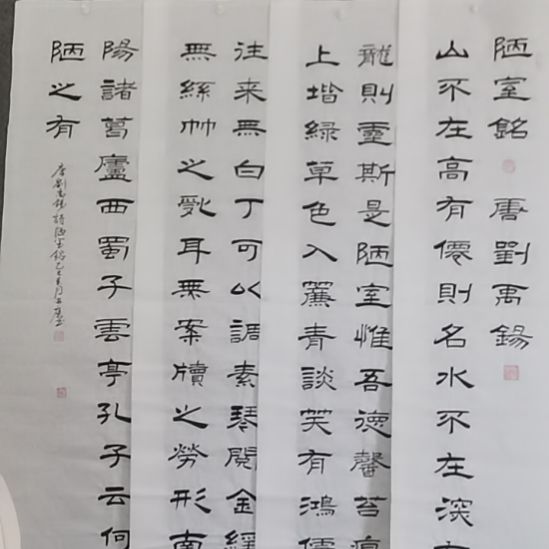 陋室銘 唐劉禹錫
山不在高有僊則名水不在深
龍則靈斯是陋室惟吾德馨苔
上堦綠草色入簾青談笑有鴻儒
往来無白丁可以調素琴閱金
無絲竹之亂耳無案牘之勞形南
陽諸葛廬西蜀子雲亭孔子云何
陋之有
唐劉禹錫詩陋室銘乙巳